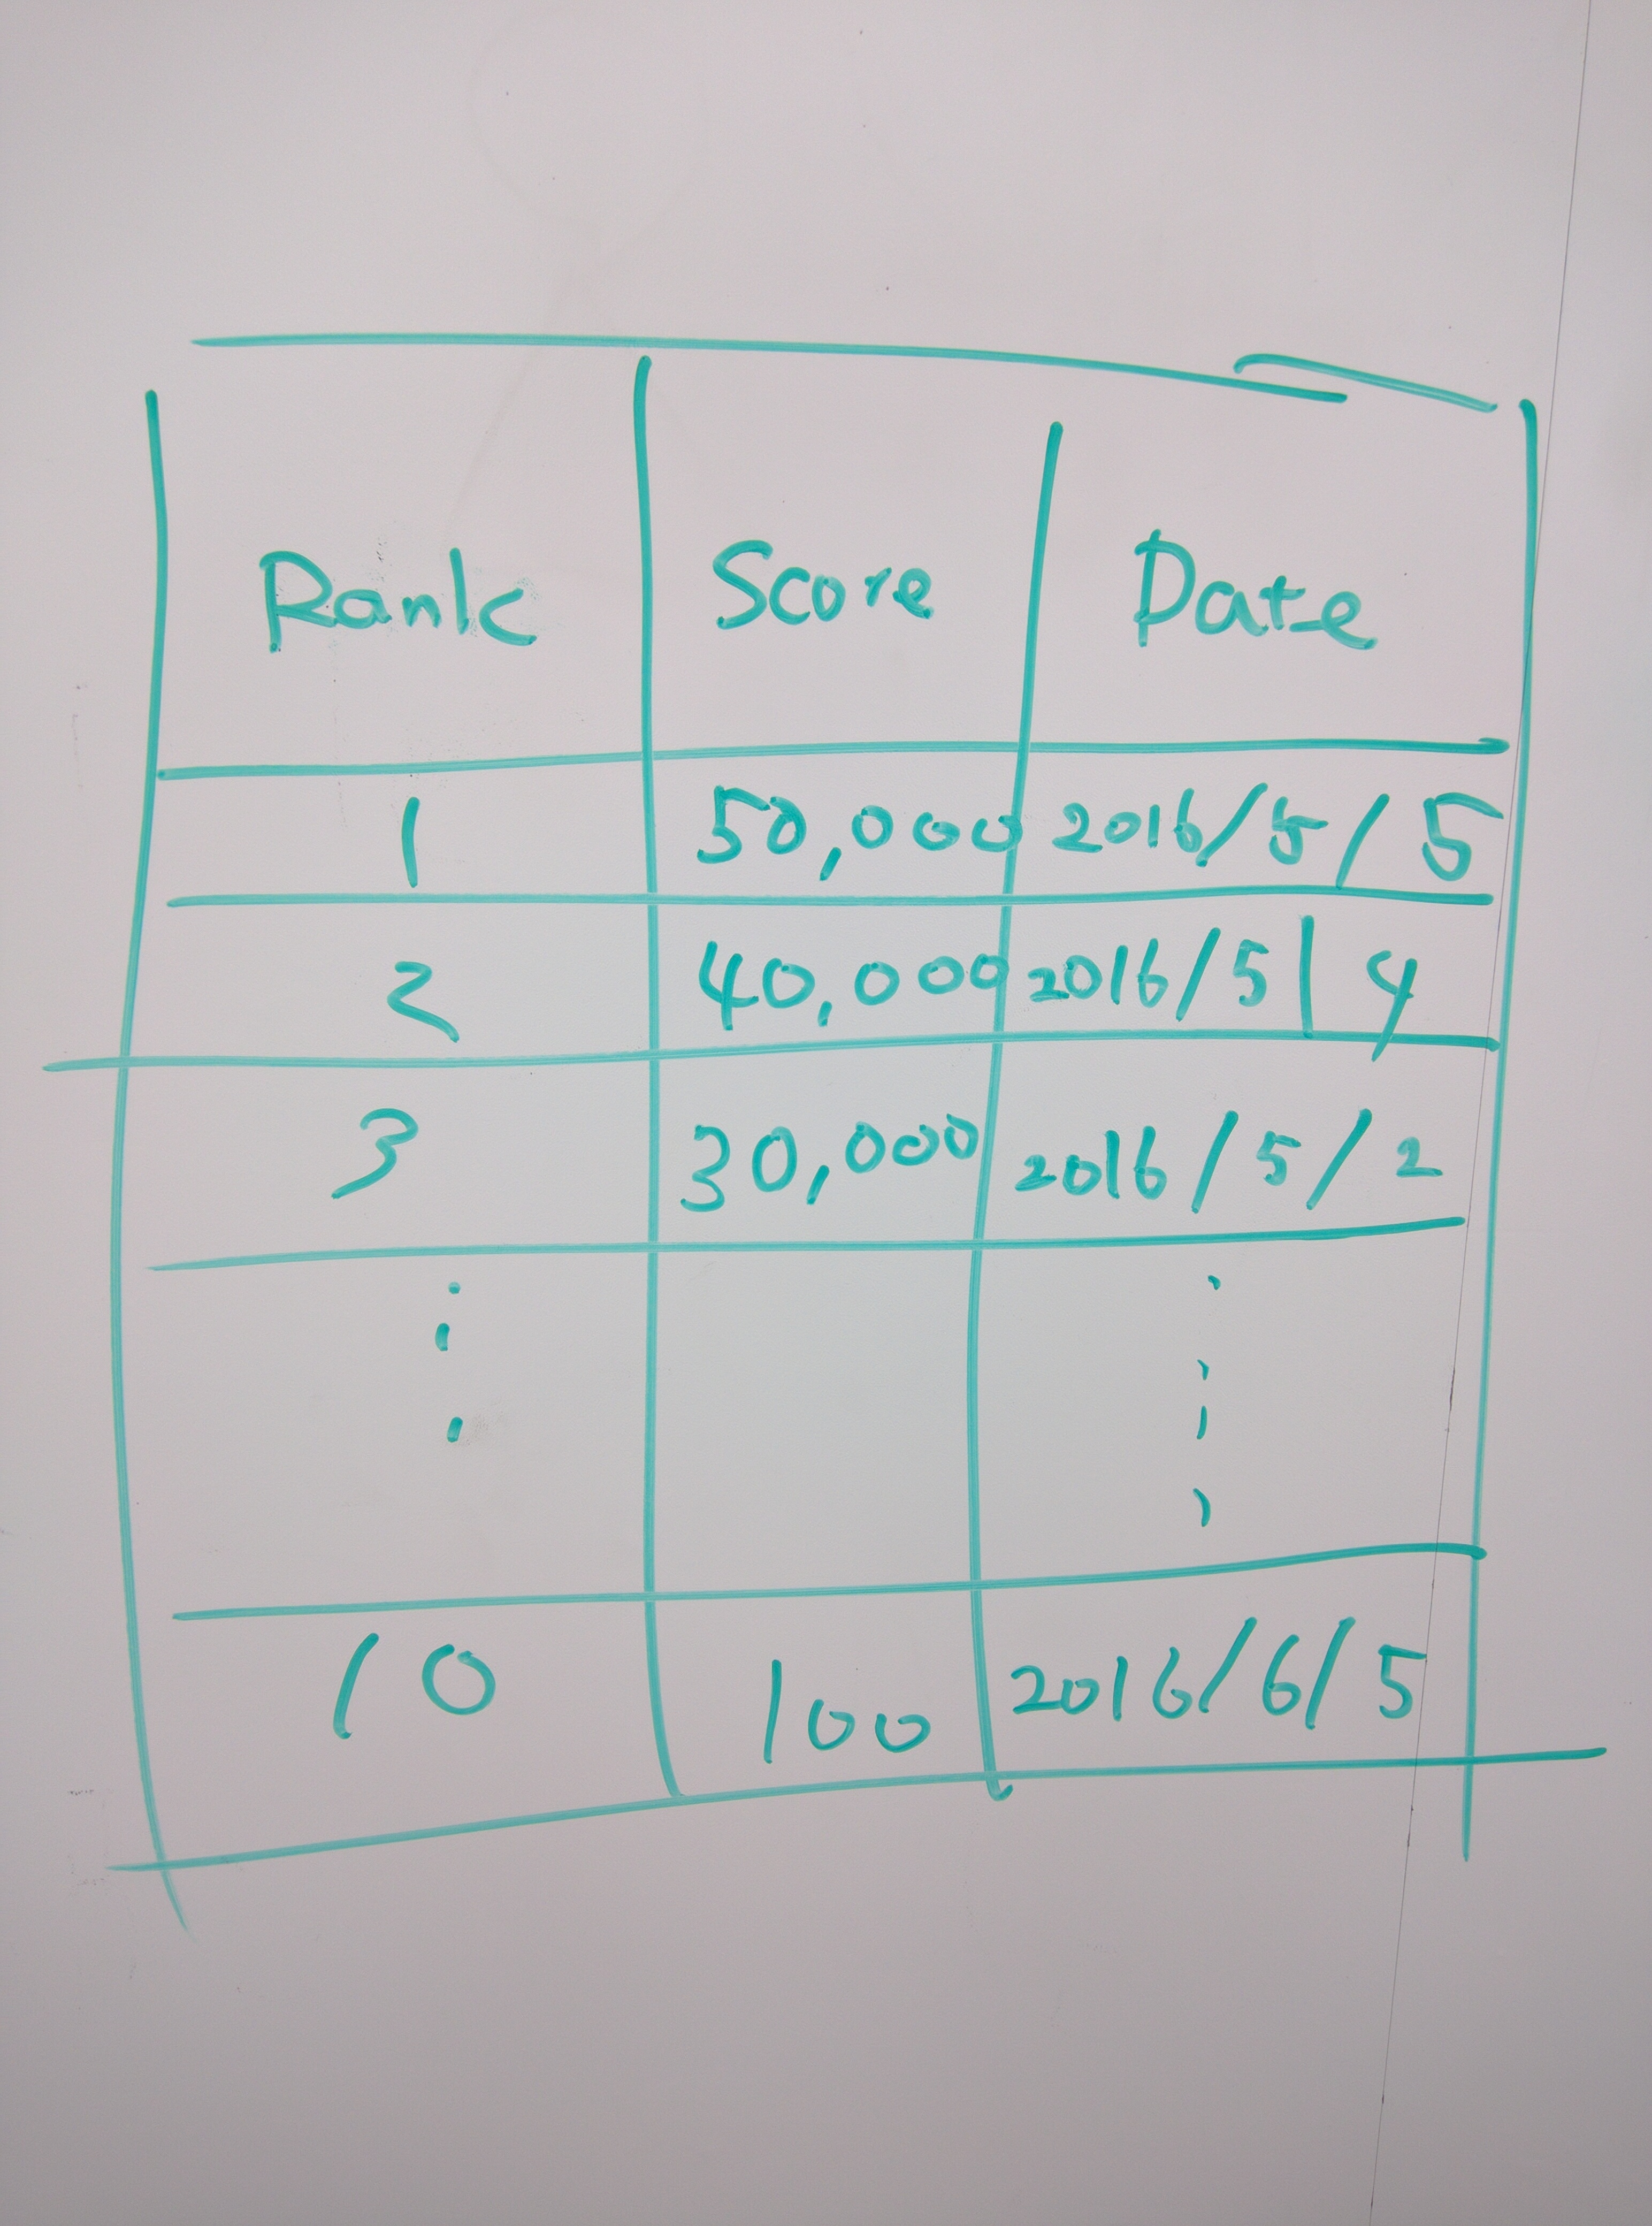 Rank Score Date
1 50,000 2016/5/5
2 40,000 2016/5/4
3 30,000 2016/5/2
10 100 2016/6/5